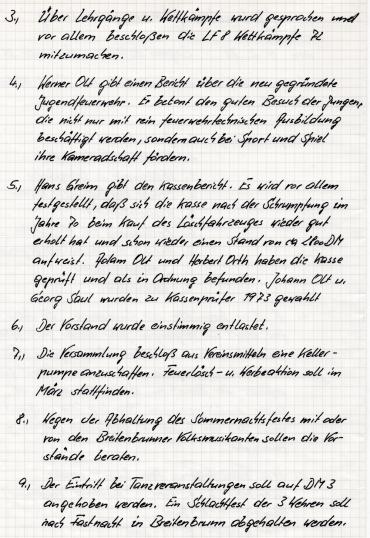 3., Über Lehrgänge u. Wettkämpfe wurd gesprochen und
vor allem beschloßen die LF8 Wettkämpfe 72
mitzumachen.
4., Werner Olt gibt einen Bericht über die neu gegründete
Jugendfeuerwehr. Er betont den guten Besuch der Jungen,
die nicht nur mit rein feuerwehrtechnischen Ausbildung
beschäftigt werden, sondern auch bei Sport und Spiel
ihre Kameradschaft fördern.
5., Hans Greim gibt den Kassenbericht. Es wird vor allem
festgestellt, daß sich die Kasse nach der Schrumpfung im
Jahre 70 beim Kauf des Löschfahrzeuges wieder gut
erholt hat und schon wieder einen Stand von ca DM
aufweist. Adam Olt und Herbert Orth haben die Kasse
geprüft und als in Ordnung befunden. Johann Olt u.
Georg Saul wurden zu Kassenprüfer 1973 gewählt
6., Der Vorstand wurde einstimmig entlastet.
7., Die Versammlung beschloß aus Vereinsmitteln eine Keller-
pumpe anzuschaffen. Feuerlösch- u. Werbeaktion soll im
März stattfinden.
8., Wegen der Abhaltung des Sommernachtsfestes mit oder
von den Breitenbrunner Volksmusikanten sollen die Vor-
stände beraten.
9., Der Eintritt bei Tanzveranstaltungen soll auf DM 3
angehoben werden. Ein Schlachtfest der 3 Wehren soll
nach Fastnacht in Breitenbrunn abgehalten werden.